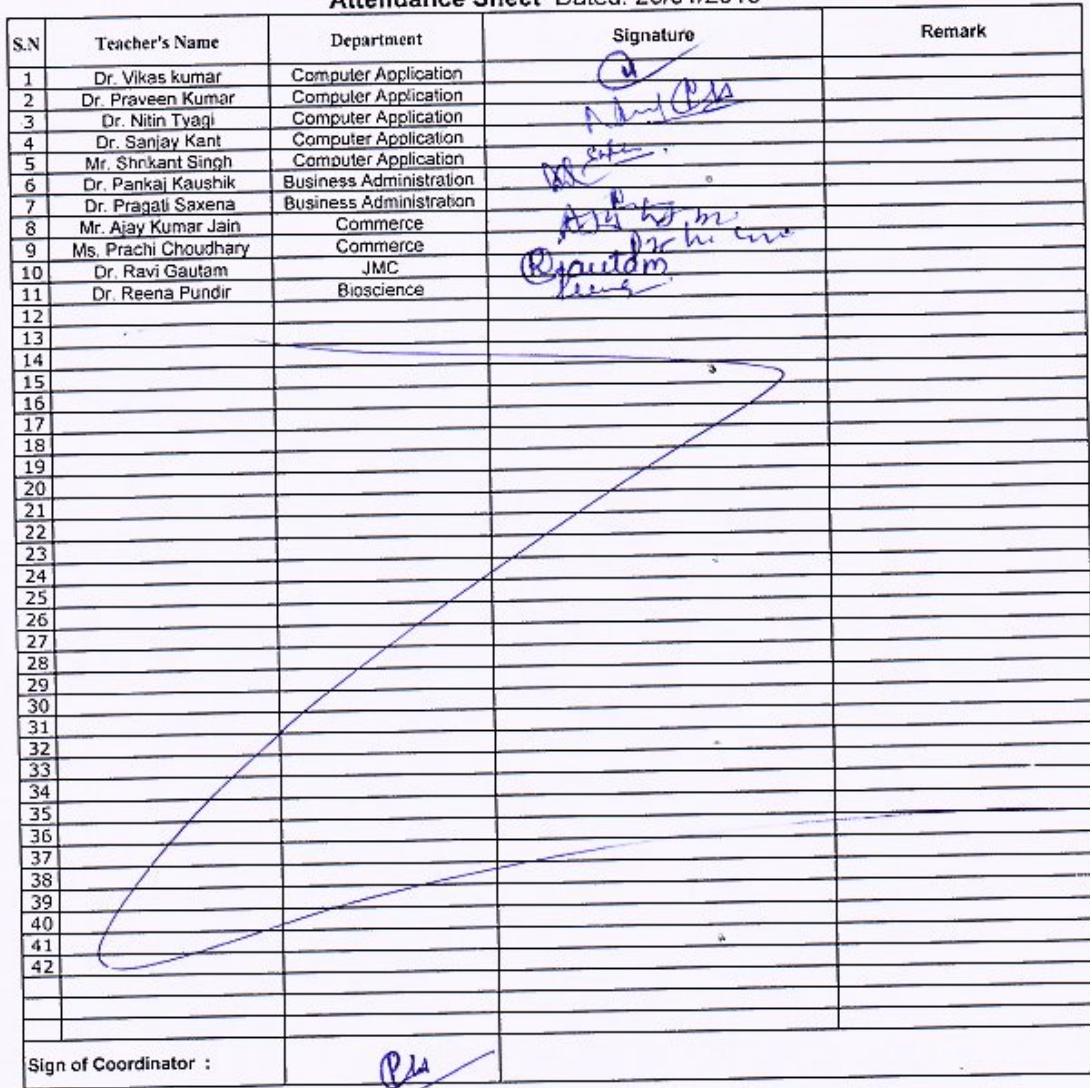 Attendance Sheet Dated:
S.N Teacher's Name Department Signature Remark
1 Dr. Vikas kumar Computer Application
2 Dr. Praveen Kumar Computer Application
3 Dr. Nitin Tyagi Computer Application
4 Dr. Sanjay Kant Computer Application
5 Mr. Shrikant Singh Computer Application
6 Dr. Pankaj Kaushik Business Administration
7 Dr. Pragati Saxena Business Administration
8 Mr. Ajay Kumar Jain Commerce
9 Ms. Prachi Choudhary Commerce
10 Dr. Ravi Gautam JMC Rgautam
11 Dr. Reena Pundir Bioscience
12
13
14
15
16
17
18
19
20
21
22
23
24
25
26
27
28
29
30
31
32
33
34
35
36
37
38
39
40
41
42
Sign of Coordinator :